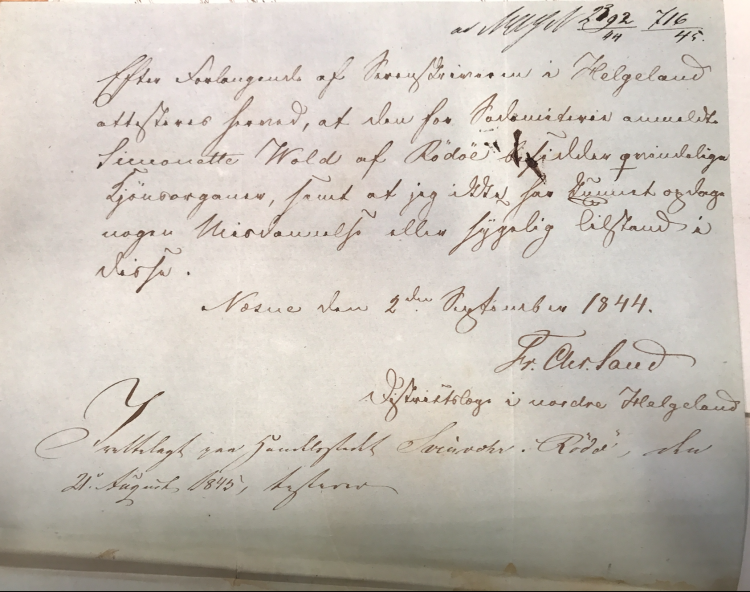 ad 2392/44 716/45.
Efter Forlangende af Sorenskriveren i Helgeland
attesteres herved, at den for Sodomiterie anmeldte
Simonette Wold af Rödöe besidder qvindelige
Kjönsorganer, samt at jeg ikke har kunnet opdage
nogen Misdannelse eller sygelig tilstand i
disse.
Næsne den 2den September 1844.
Fr. Chr. Sand
Districtslæge i nordre Helgeland
Fremlagt paa Handelsstedet Rödö, den
21. August 1845, testerer